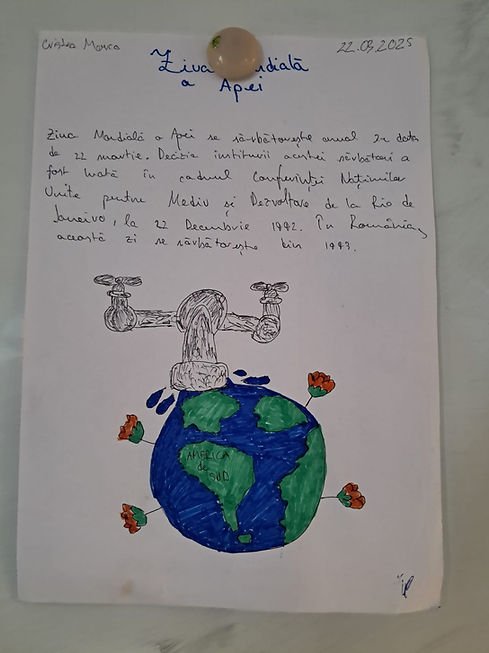 Cristea Marco
22.03.2025
Ziua Mondială
a Apei
Ziua Mondială a Apei se sărbătorește anual în data
de 22 martie. Decizia instituirii acestei sărbători a
fost luată în cadrul Conferinței Națiunilor
Unite pentru Mediu și Dezvoltare de la Rio de
Janeiro, la 22 Decembrie 1992. În România,
această zi se sărbătorește din 1993.
AMERICA
de
SUD